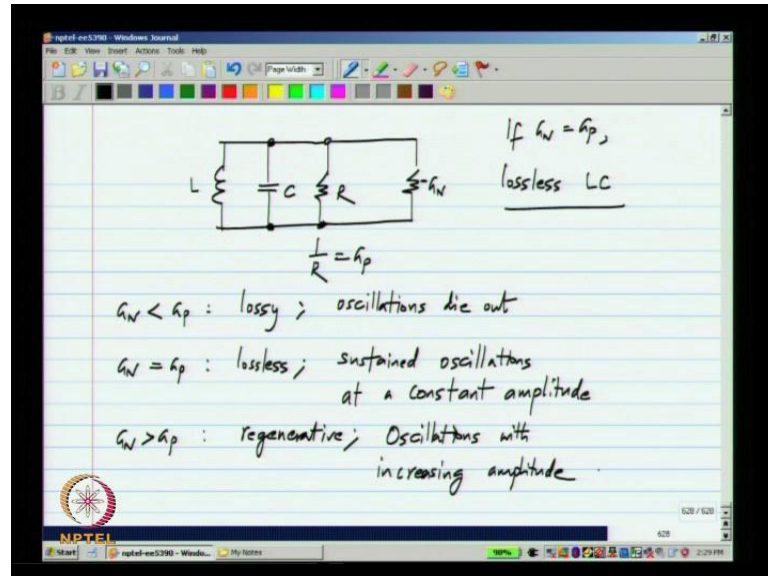 nptel-ee5390 - Windows Journal
File Edit View Insert Actions Tools Help
Page Width
B I
If G_N = G_P,
lossless LC
L C R -G_N
1/R = G_P
G_N < G_P : lossy ; oscillations die out
G_N = G_P : lossless ; sustained oscillations
at a constant amplitude
G_N > G_P : regenerative ; Oscillations with
increasing amplitude
628 / 628
628
NPTEL
Start nptel-ee5390 - Windo... My Notes 90% 2:29 PM